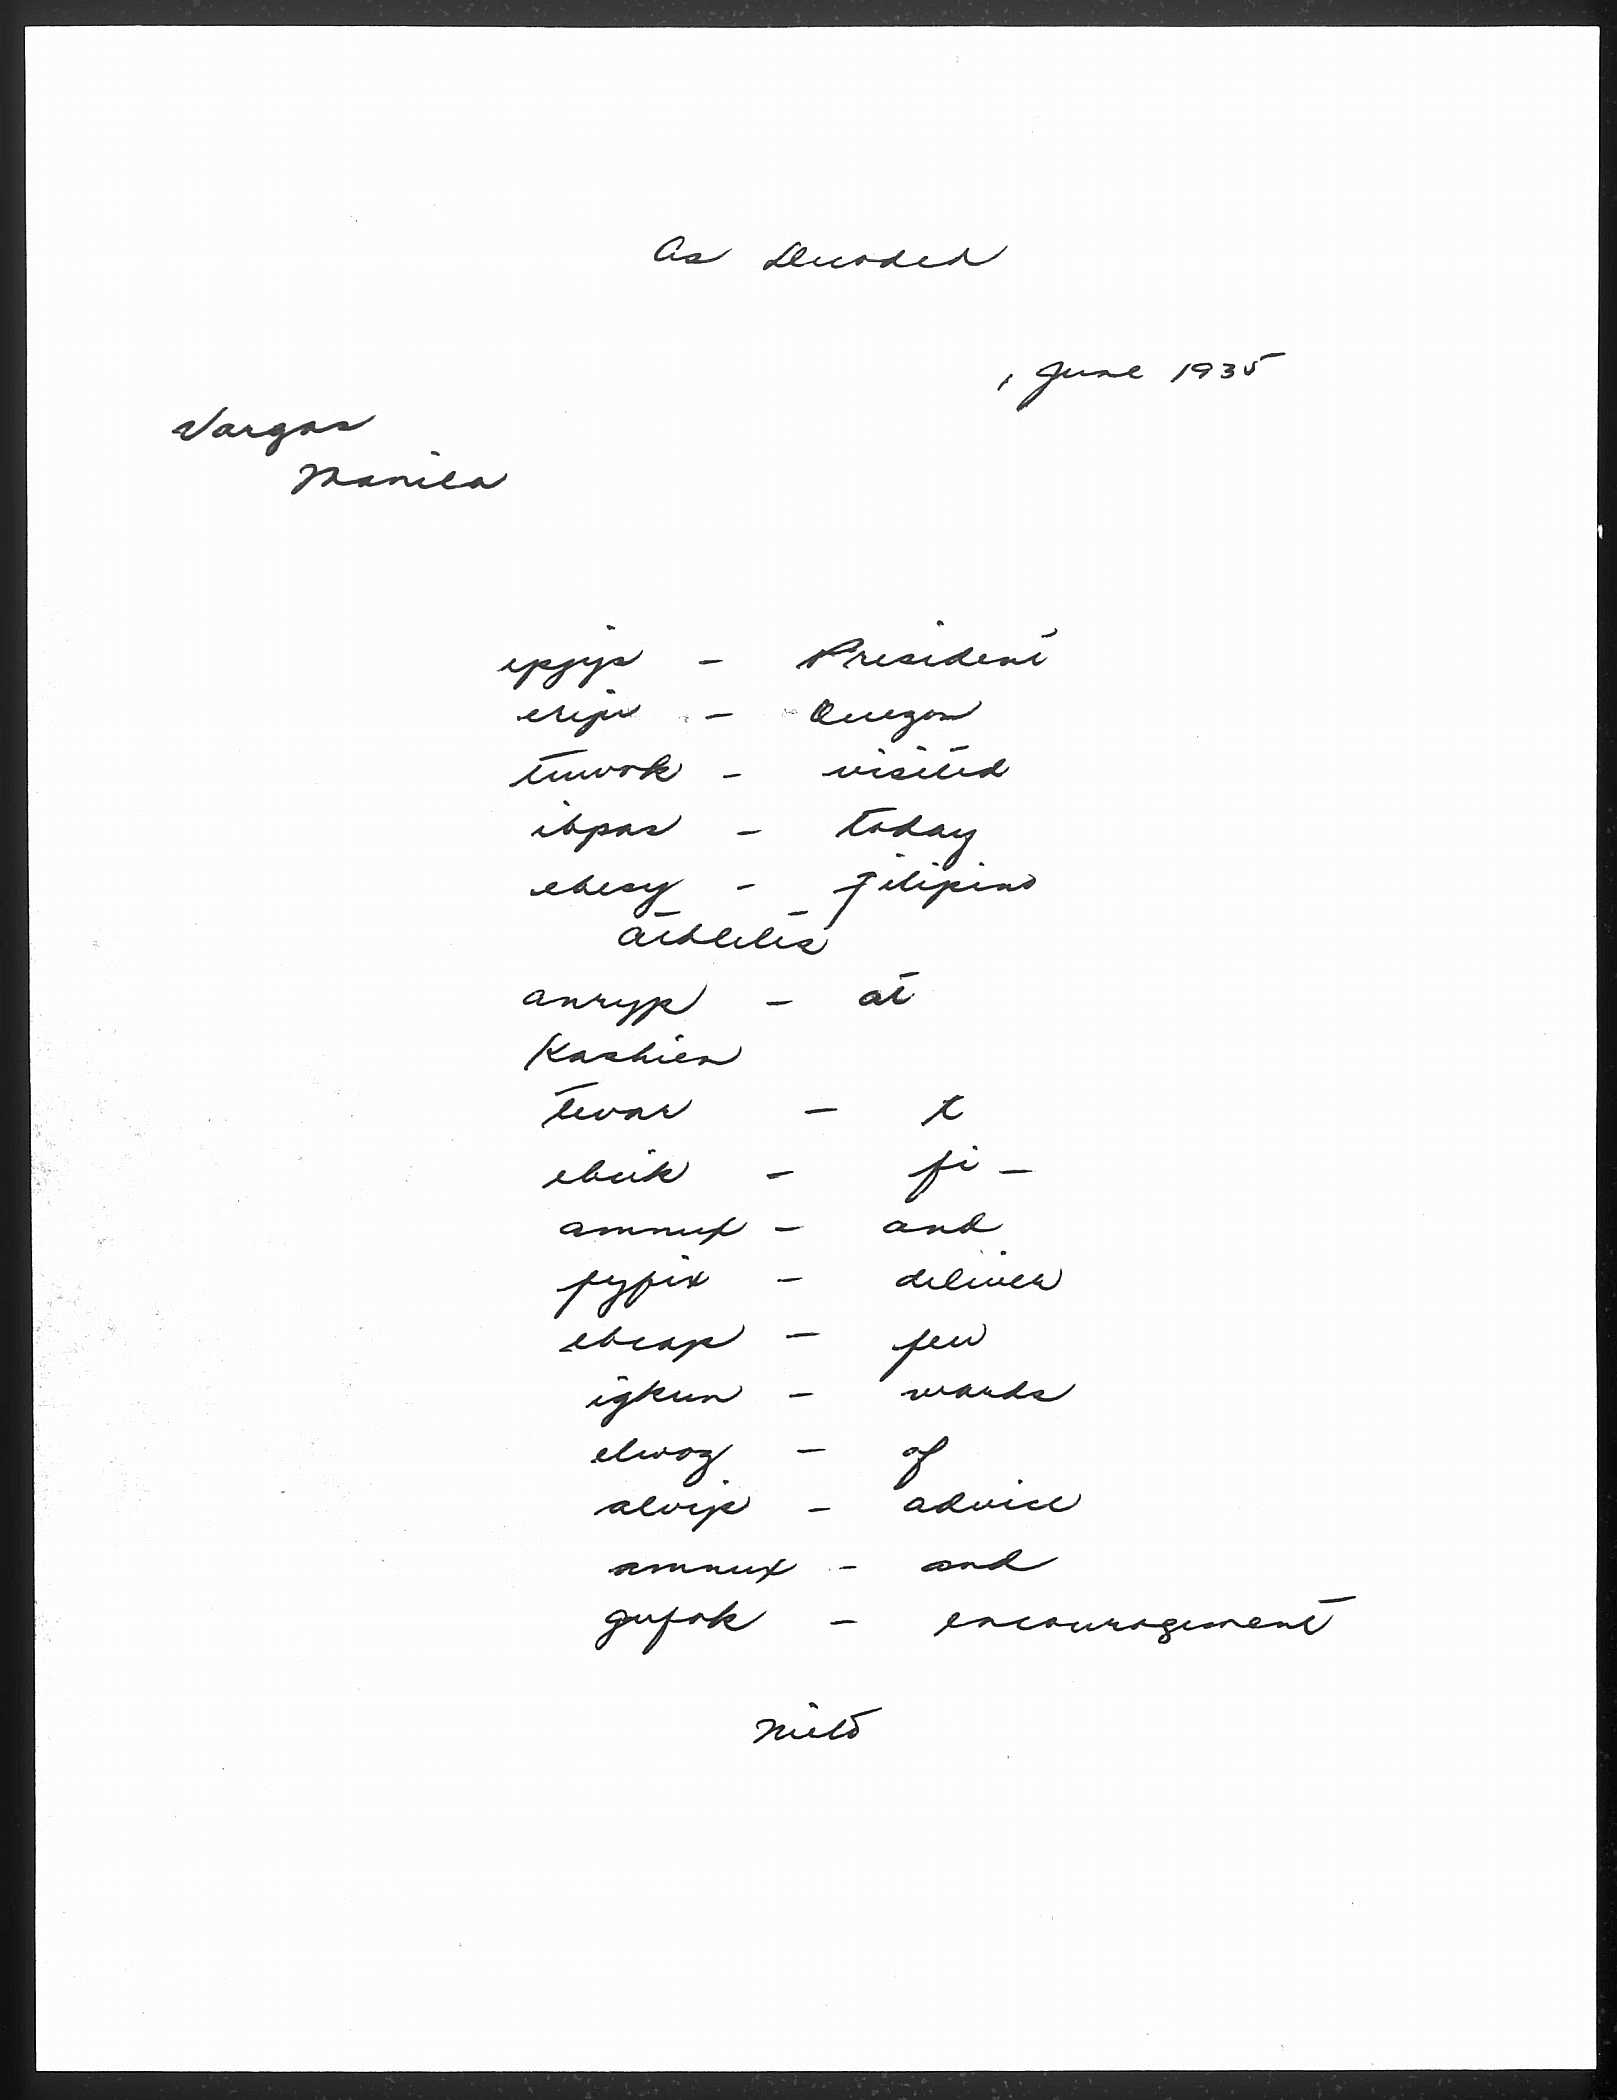 As Decoded
, June 1935
Vargas
Manila
epjys - President
erijv - Quezon
tuwok - visited
ibpas - today
ebesy - Filipino
athletes
anryp - at
Kashien
tevar - t
ebuik - fi -
amnux - and
pypix - deliver
ebeap - few
igkun - words
elwoz - of
alvip - advice
amnux - and
gufok - encouragement
Nieto